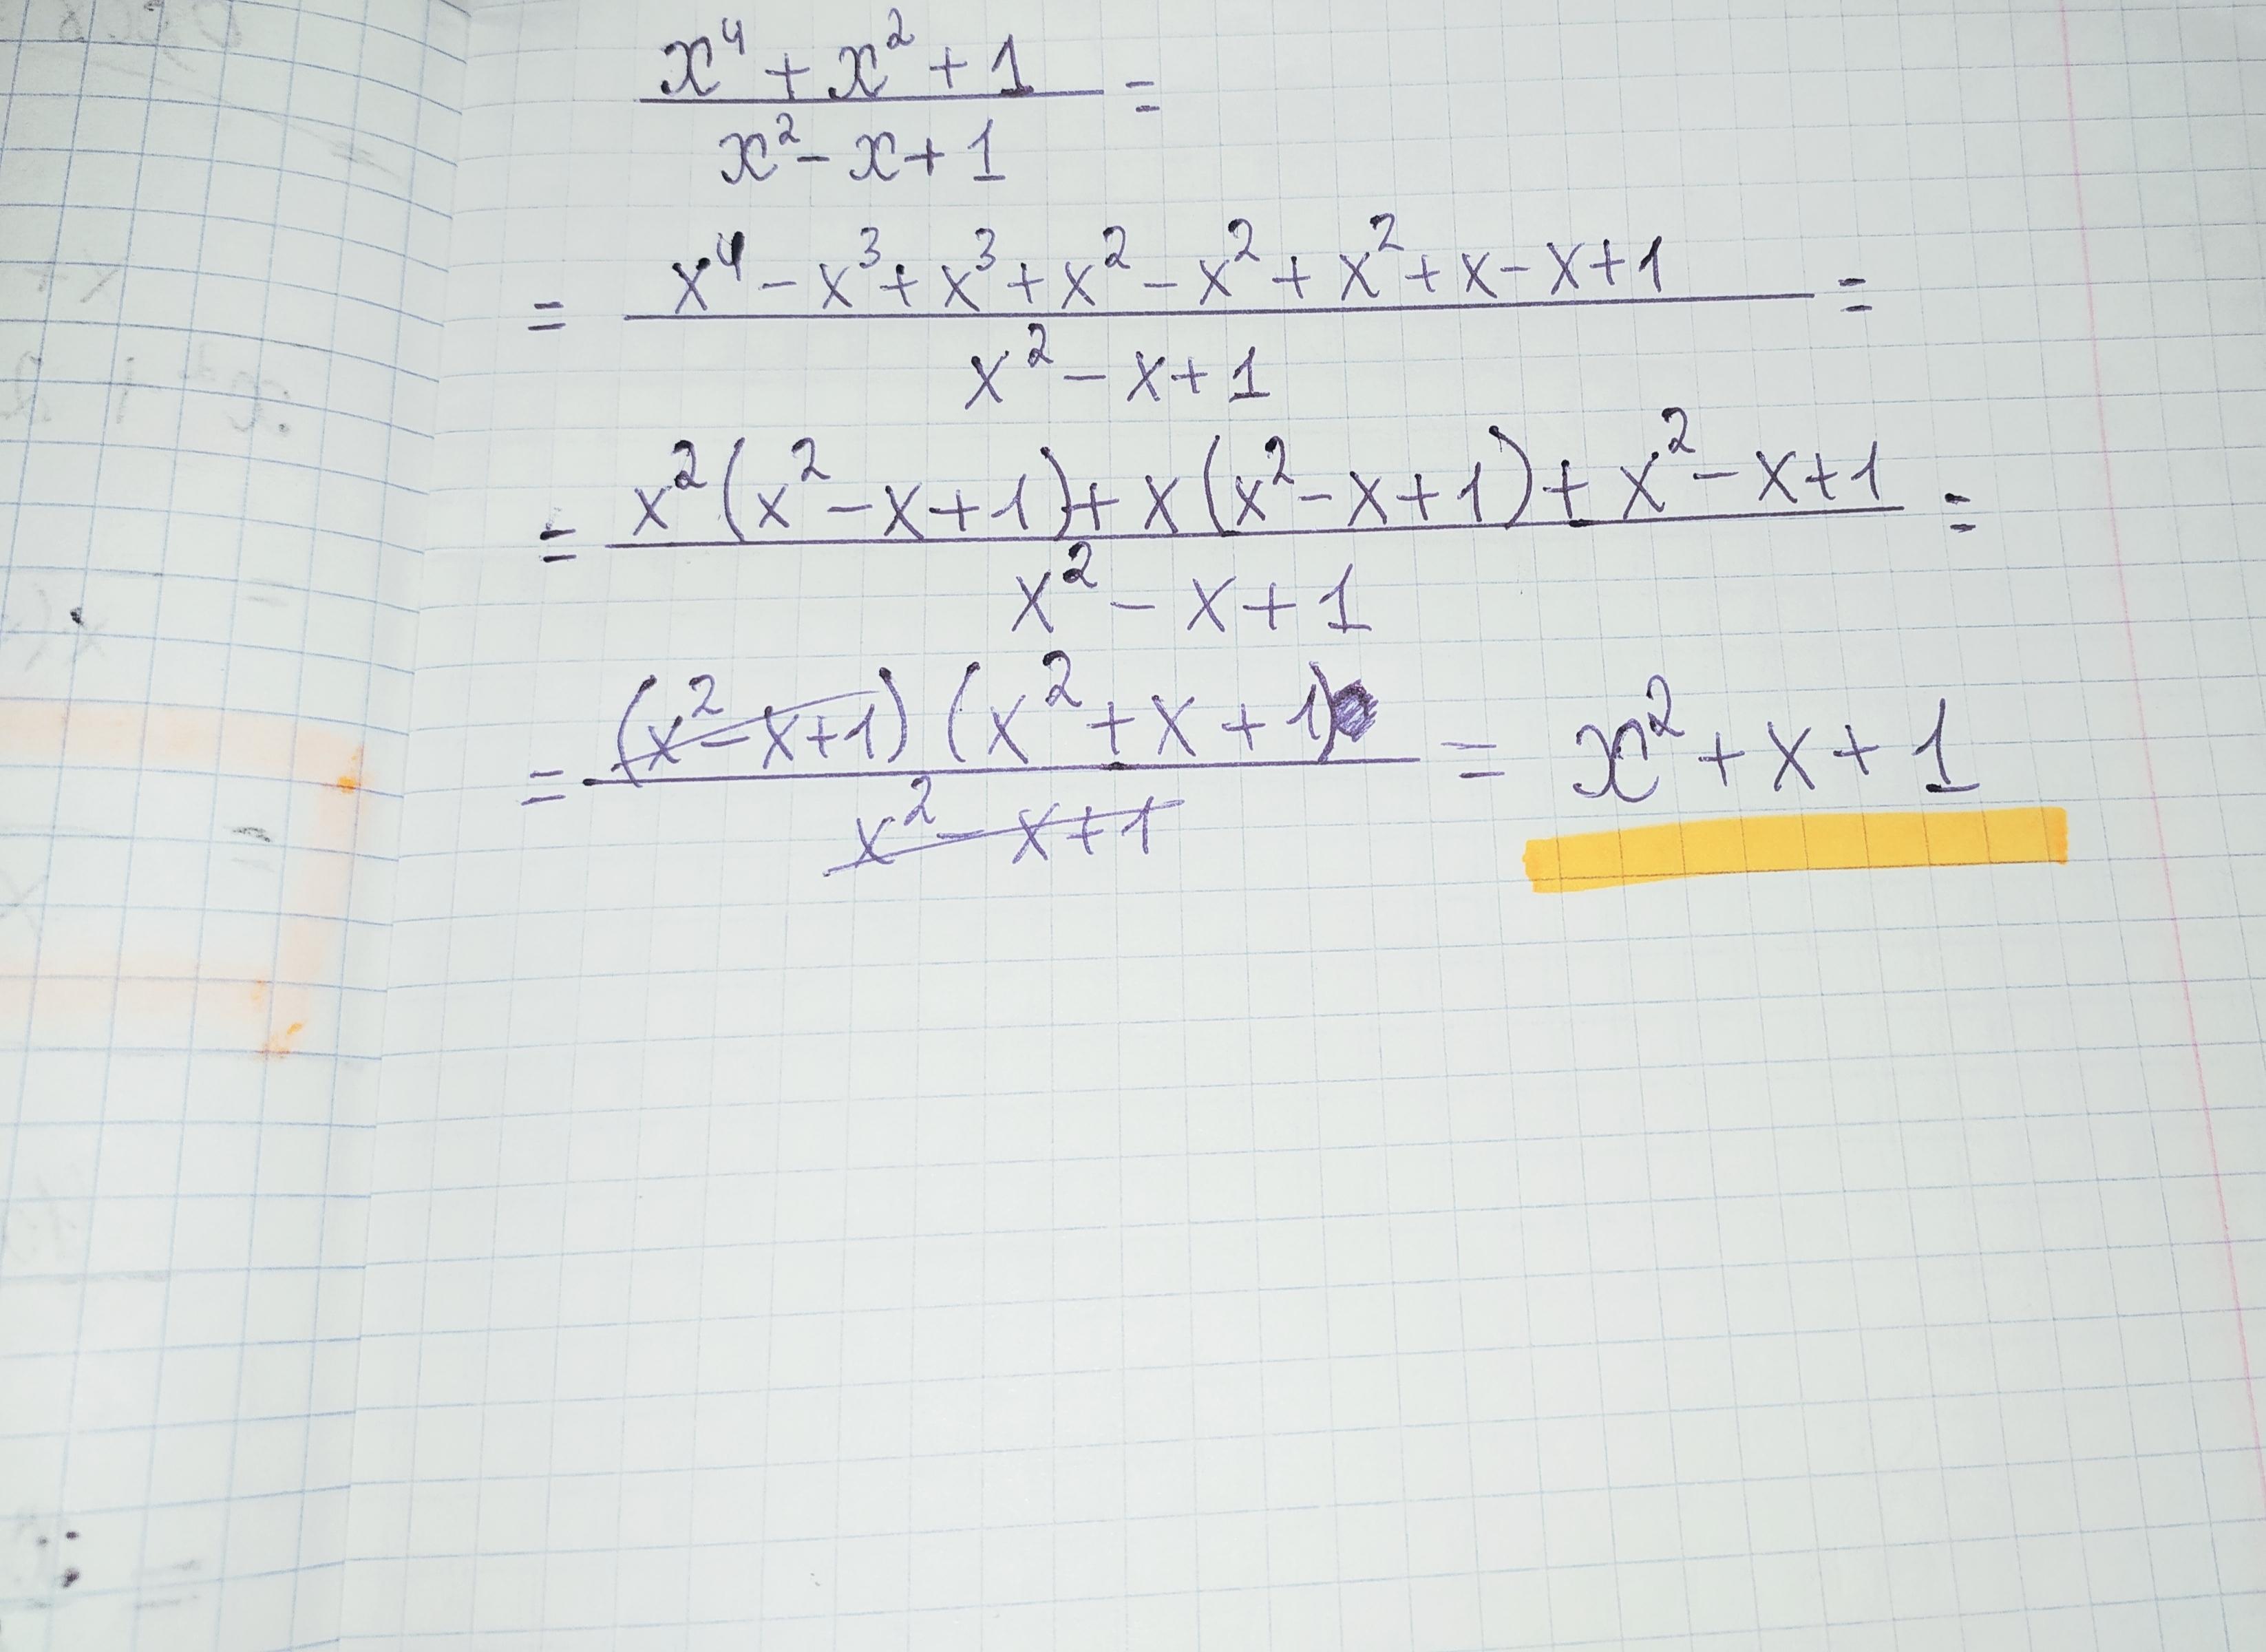 x⁴ + x² + 1 / x² - x + 1 =
= x⁴ - x³ + x³ + x² - x² + x² + x - x + 1 / x² - x + 1 =
= x²(x² - x + 1) + x(x² - x + 1) + x² - x + 1 / x² - x + 1 =
= (x² - x + 1)(x² + x + 1) / x² - x + 1 = x² + x + 1